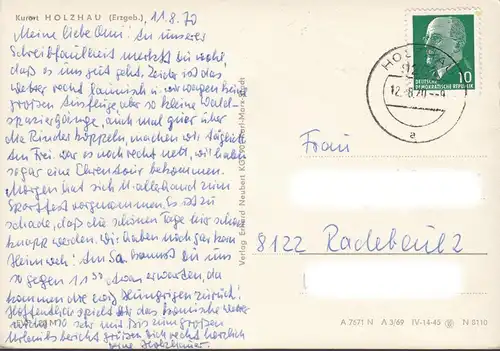 Kurort HOLZHAU (Erzgeb.) 11.8.70
Meine liebe Omi! An unserer
Schreibfaulheit merkst Du wohl,
daß es uns gut geht. Leider ist das
Wetter recht launisch u. wir wagen keine
großen Ausflüge, aber so kleine Wald-
spaziergänge, auch mal quer über
die Rinderkoppeln, machen wir täglich.
Am Frei. war es noch recht nett, wir haben
sogar eine Ehrentour bekommen.
Morgen hat sich M. allerhand zum
Sportfest vorgenommen. Es ist zu
schade, daß die schönen Tage nur schon
knapp werden. Wir haben noch gar kein
Heimweh! Am Sa. kannst Du uns
so gegen 11³⁰ etwa erwarten, da
kommen die ewig Hungrigen zurück!
Hoffentlich spielt Dir das komische Wetter
nicht sehr mit. Bis zum großen
Urlaubsbericht grüßt Dich recht herzlich
Deine Holzhauer.
Verlag Erhard Neubert KG 90 Karl-Marx-Stadt
HOLZHAU
12.-8.70
a
DEUTSCHE
DEMOKRATISCHE REPUBLIK
10
Frau
8122 Radebeul 2
A 7571 N A 3/69 IV-14-45 N 5110